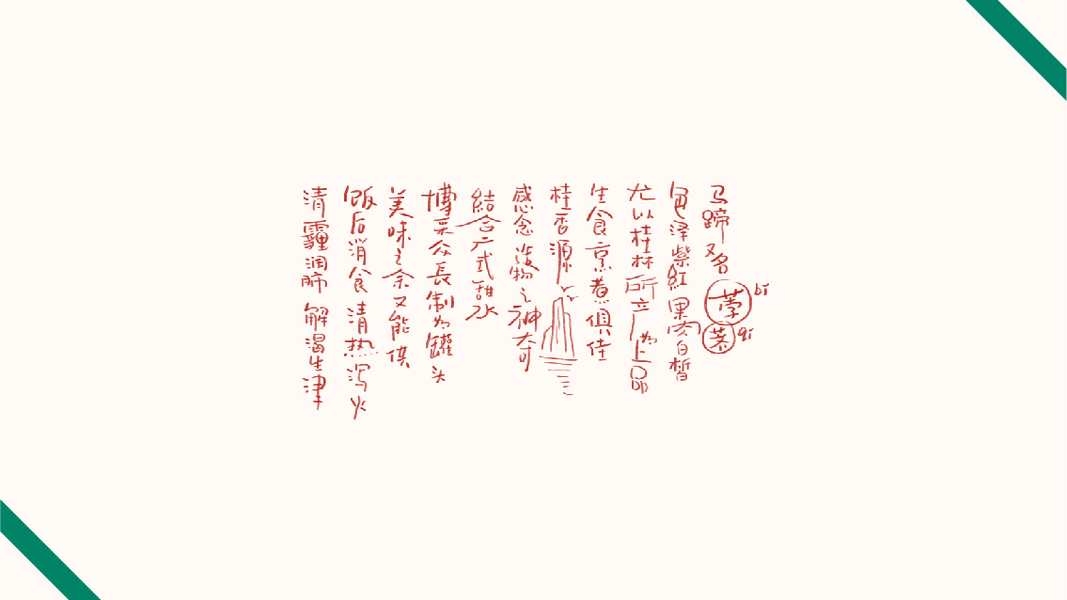 马蹄又名荸荠 bi qi
色泽紫紅果肉白皙
尤以桂林所产为上品
生食烹煮俱佳
桂香源
感念造物之神奇
結合广式甜水
博采众長制为罐头
美味之余又能供
饭后消食清热泻火
清霾润肺 解渴生津